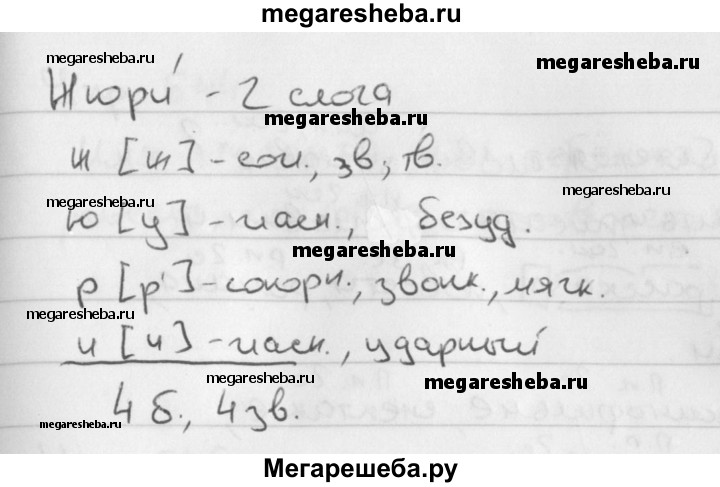 megaresheba.ru
megaresheba.ru
megaresheba.ru
Жюри́ - 2 слога
megaresheba.ru
ж [ж] - сог., зв., тв.
megaresheba.ru
ю [у] - гласн., безуд.
megaresheba.ru
р [р'] - сонорн., звонк., мягк.
megaresheba.ru
и [и] - гласн., ударный
megaresheba.ru
megaresheba.ru
4 б., 4 зв.
megaresheba.ru
Мегарешеба.ру